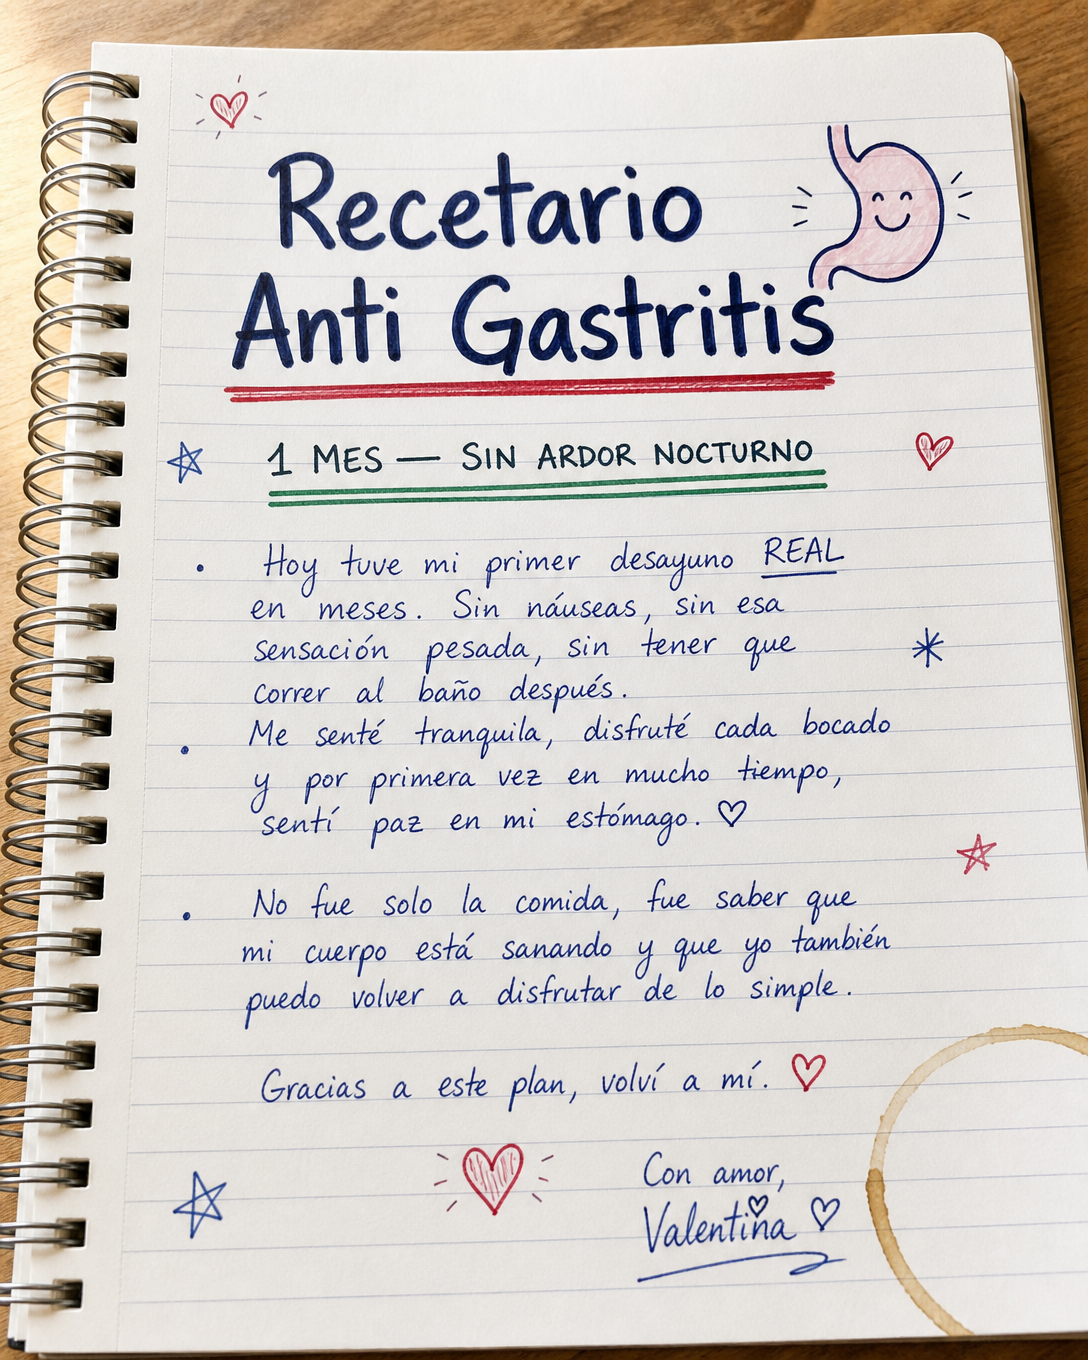 Recetario
Anti Gastritis
1 MES — SIN ARDOR NOCTURNO
• Hoy tuve mi primer desayuno REAL
en meses. Sin náuseas, sin esa
sensación pesada, sin tener que
correr al baño después.
• Me senté tranquila, disfruté cada bocado
y por primera vez en mucho tiempo,
sentí paz en mi estómago. ♡
• No fue solo la comida, fue saber que
mi cuerpo está sanando y que yo también
puedo volver a disfrutar de lo simple.
Gracias a este plan, volví a mí. ♡
Con amor,
Valentina ♡